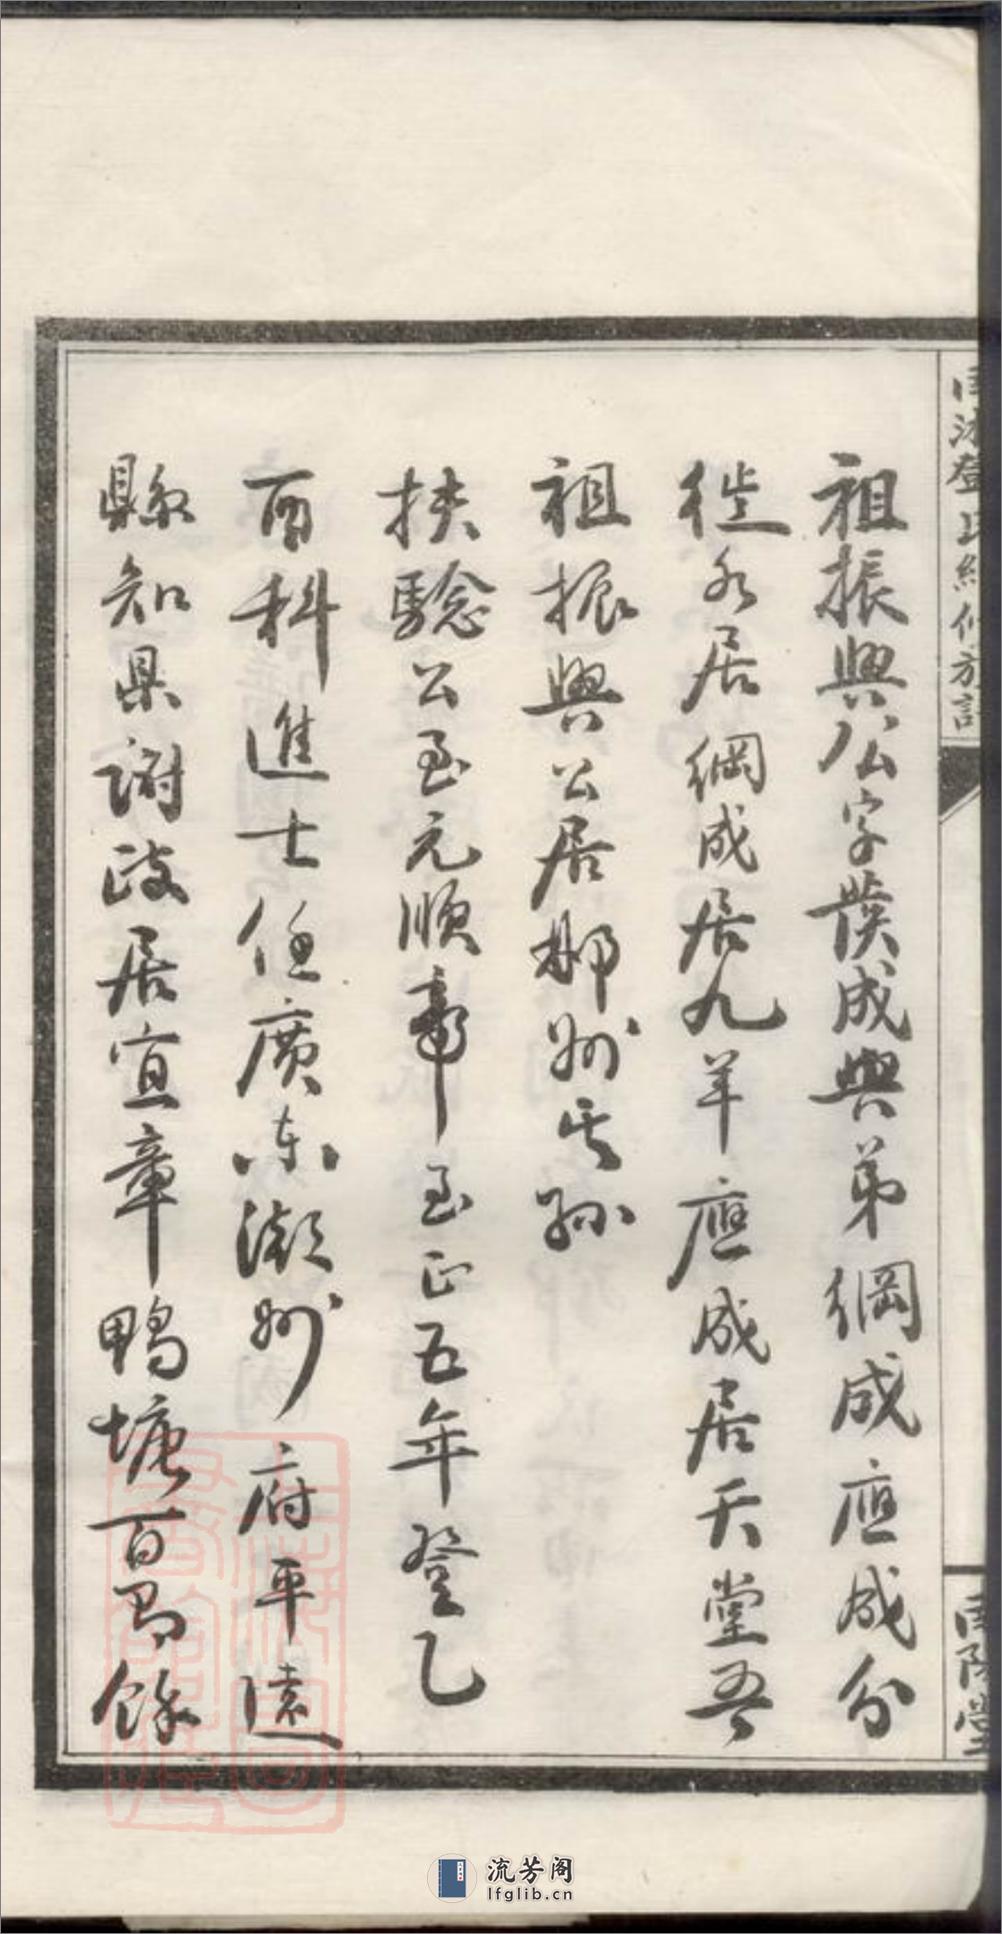 祖振興公字發成與弟綱成應成分
徙水居綱成居九羊應成居天堂吾
祖振興公居郴州其孫
扶驗公至元順帝至正五年登乙
酉科進士任廣東潮州府平遠
縣知縣謝政居宜章鴨塘百馬餘
南陽堂
流芳阁
lfglib.cn